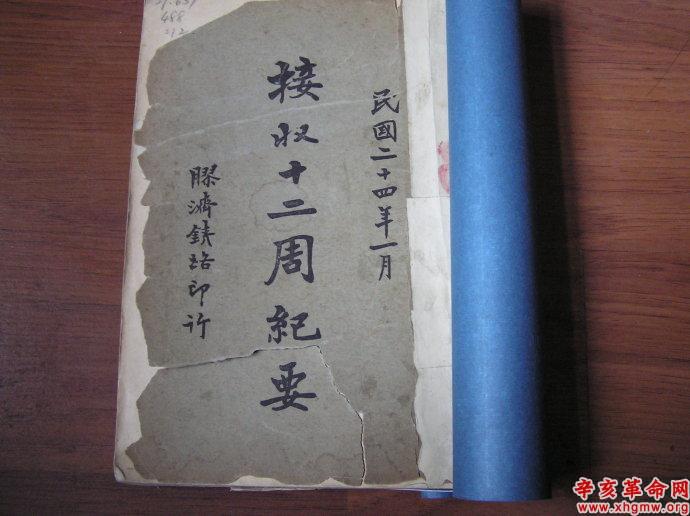 民國二十四年一月
接收十二周紀要
膠濟鉄路印行
488
212
辛亥革命网
www.xhgmw.org